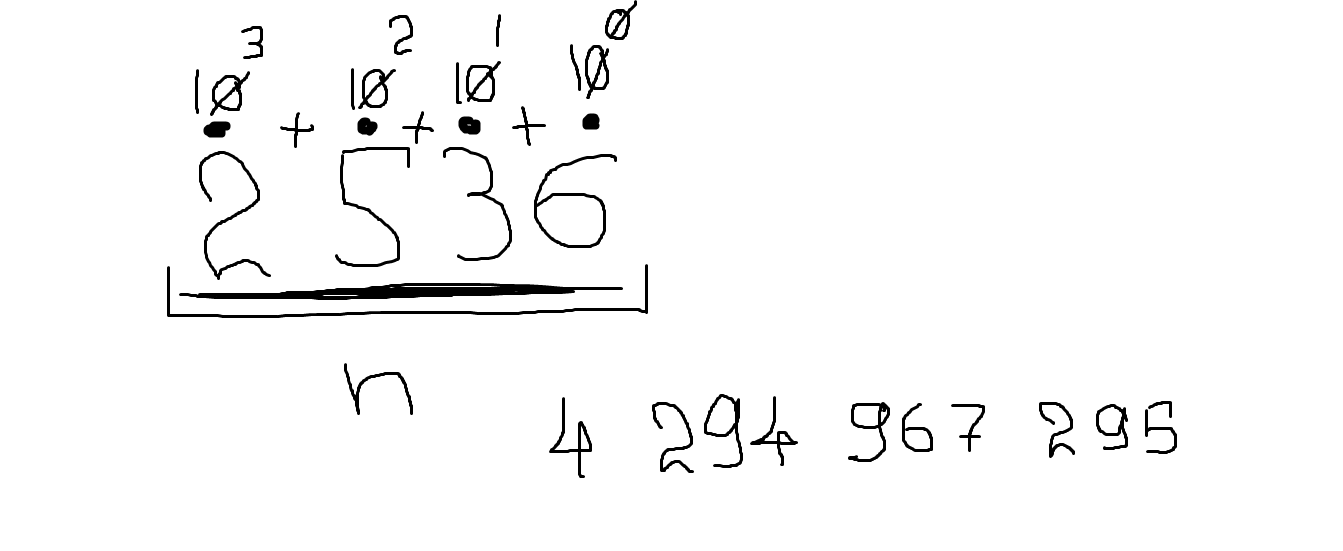 10³ 10² 10¹ 10⁰
• + • + • + •
2 5 3 6
n
4 294 967 295